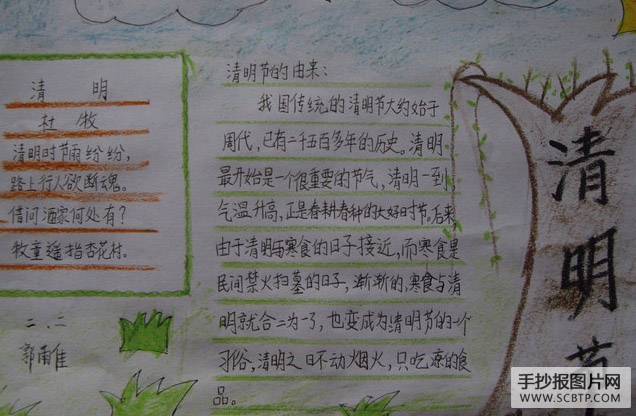 清 明
杜 牧
清明时节雨纷纷,
路上行人欲断魂。
借问酒家何处有?
牧童遥指杏花村。
二、二
郭雨佳
清明节的由来:
我国传统的清明节大约始于
周代,已有二千五百多年的历史。清明
最开始是一个很重要的节气,清明一到,
气温升高,正是春耕春种的大好时节。后来,
由于清明与寒食的日子接近,而寒食是
民间禁火扫墓的日子,渐渐的,寒食与清
明就合二为一了,也变成为清明节的一个
习俗,清明之日不动烟火,只吃凉的食
品。
清明节
手抄报图片网
WWW.SCBTP.COM